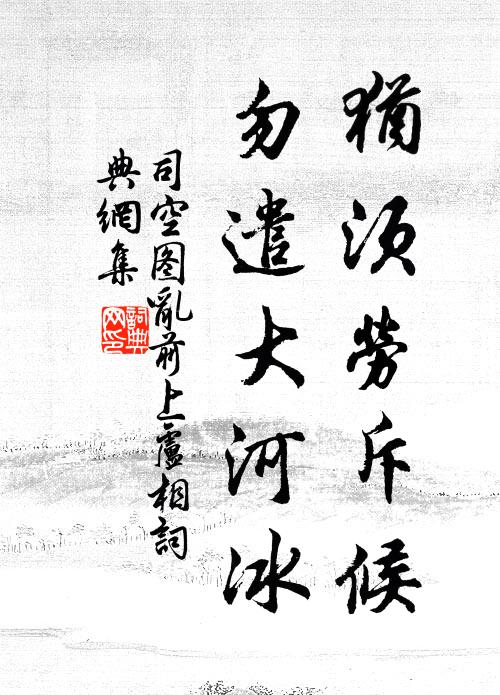 猶須勞斥候
勿遣大河冰
司空图亂前上盧相詞
典網集
詞典
网印